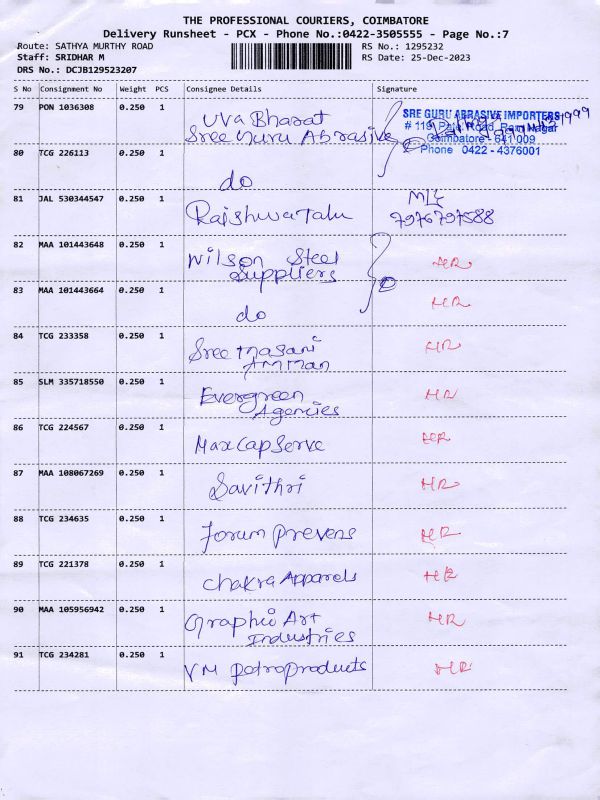 THE PROFESSIONAL COURIERS, COIMBATORE
Delivery Runsheet - PCX - Phone No.:0422-3505555 - Page No.:7
Route: SATHYA MURTHY ROAD RS No.: 1295232
Staff: SRIDHAR M RS Date: 25-Dec-2023
DRS No.: DCJB129523207
S No Consignment No Weight PCS Consignee Details Signature
79 PON 1036308 0.250 1 Uva Bharat
Sree Guru Abrasive
SRE GURU ABRASIVE IMPORTERS
# 119, Road, Ram Nagar
Coimbatore - 641 009
Phone 0422 - 4376001
80 TCG 226113 0.250 1 do
81 JAL 530344547 0.250 1 7976797588
82 MAA 101443648 0.250 1 Wilson Steel HR
Suppliers
83 MAA 101443664 0.250 1 do HR
84 TCG 233358 0.250 1 Sree Masani HR
Amman
85 SLM 335718550 0.250 1 Evergreen HR
Agencies
86 TCG 224567 0.250 1 MaxCapServe HR
87 MAA 108067269 0.250 1 Savithri HR
88 TCG 234635 0.250 1 Forum Prevens HR
89 TCG 221378 0.250 1 Chakra Apparels HR
90 MAA 105956942 0.250 1 Graphic Art HR
Industries
91 TCG 234281 0.250 1 VM Petroproducts HR